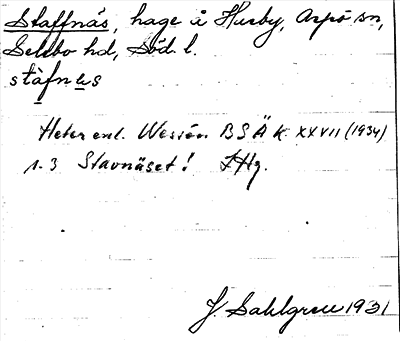 Staffnäs, hage å Husby, Arpö sn,
Selebo hd, Söd. l.
stàfnes
Heter enl. Wessén BSÄK XXVII (1934)
s. 3 Stavnäset! IHg.
J. Sahlgren 1931